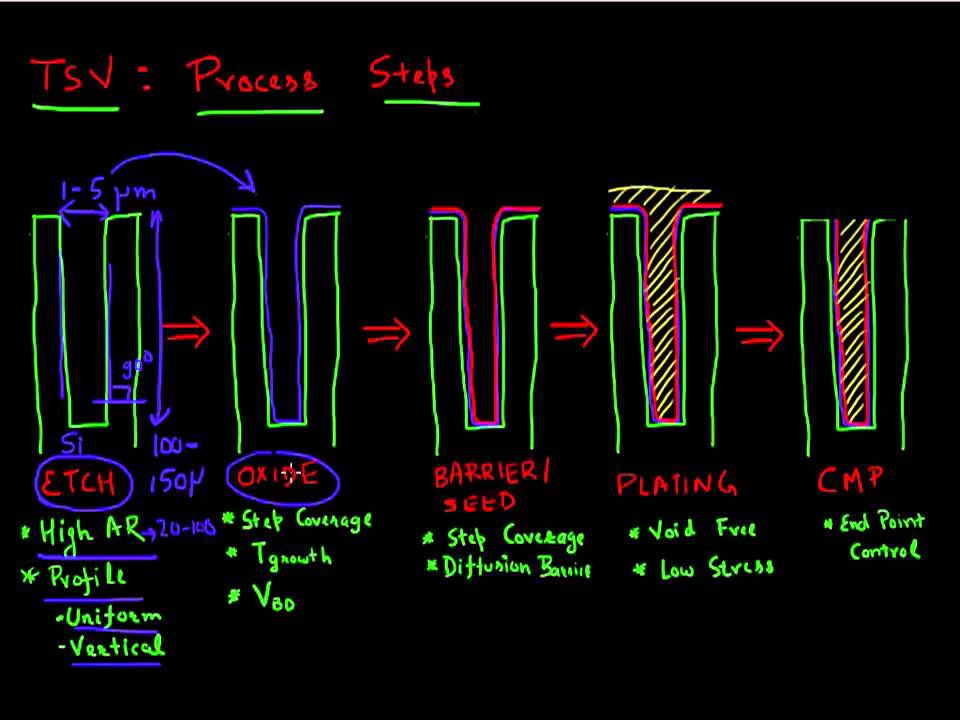 TSV : Process Steps
1-5 μm
90°
Si
100-
150μ
ETCH
* High AR → 20-100
* Profile
- Uniform
- Vertical
OXIDE
* Step Coverage
* Tgrowth
* VBD
BARRIER/
SEED
* Step Coverage
* Diffusion Barrier
PLATING
* Void Free
* Low Stress
CMP
* End Point
Control